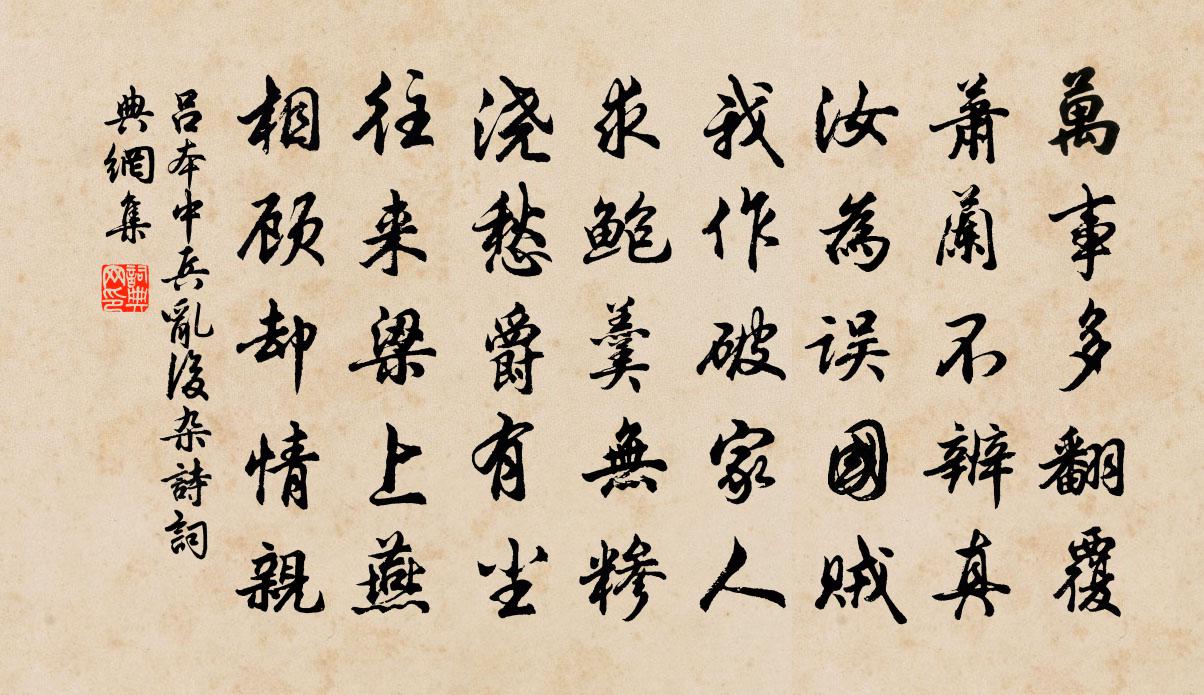 萬事多翻覆
蕭蘭不辨真
汝為誤國賊
我作破家人
求鮑羹無糝
浇愁爵有尘
往来梁上燕
相顾却情親
吕本中兵亂後杂詩詞
典網集
詞典
网印